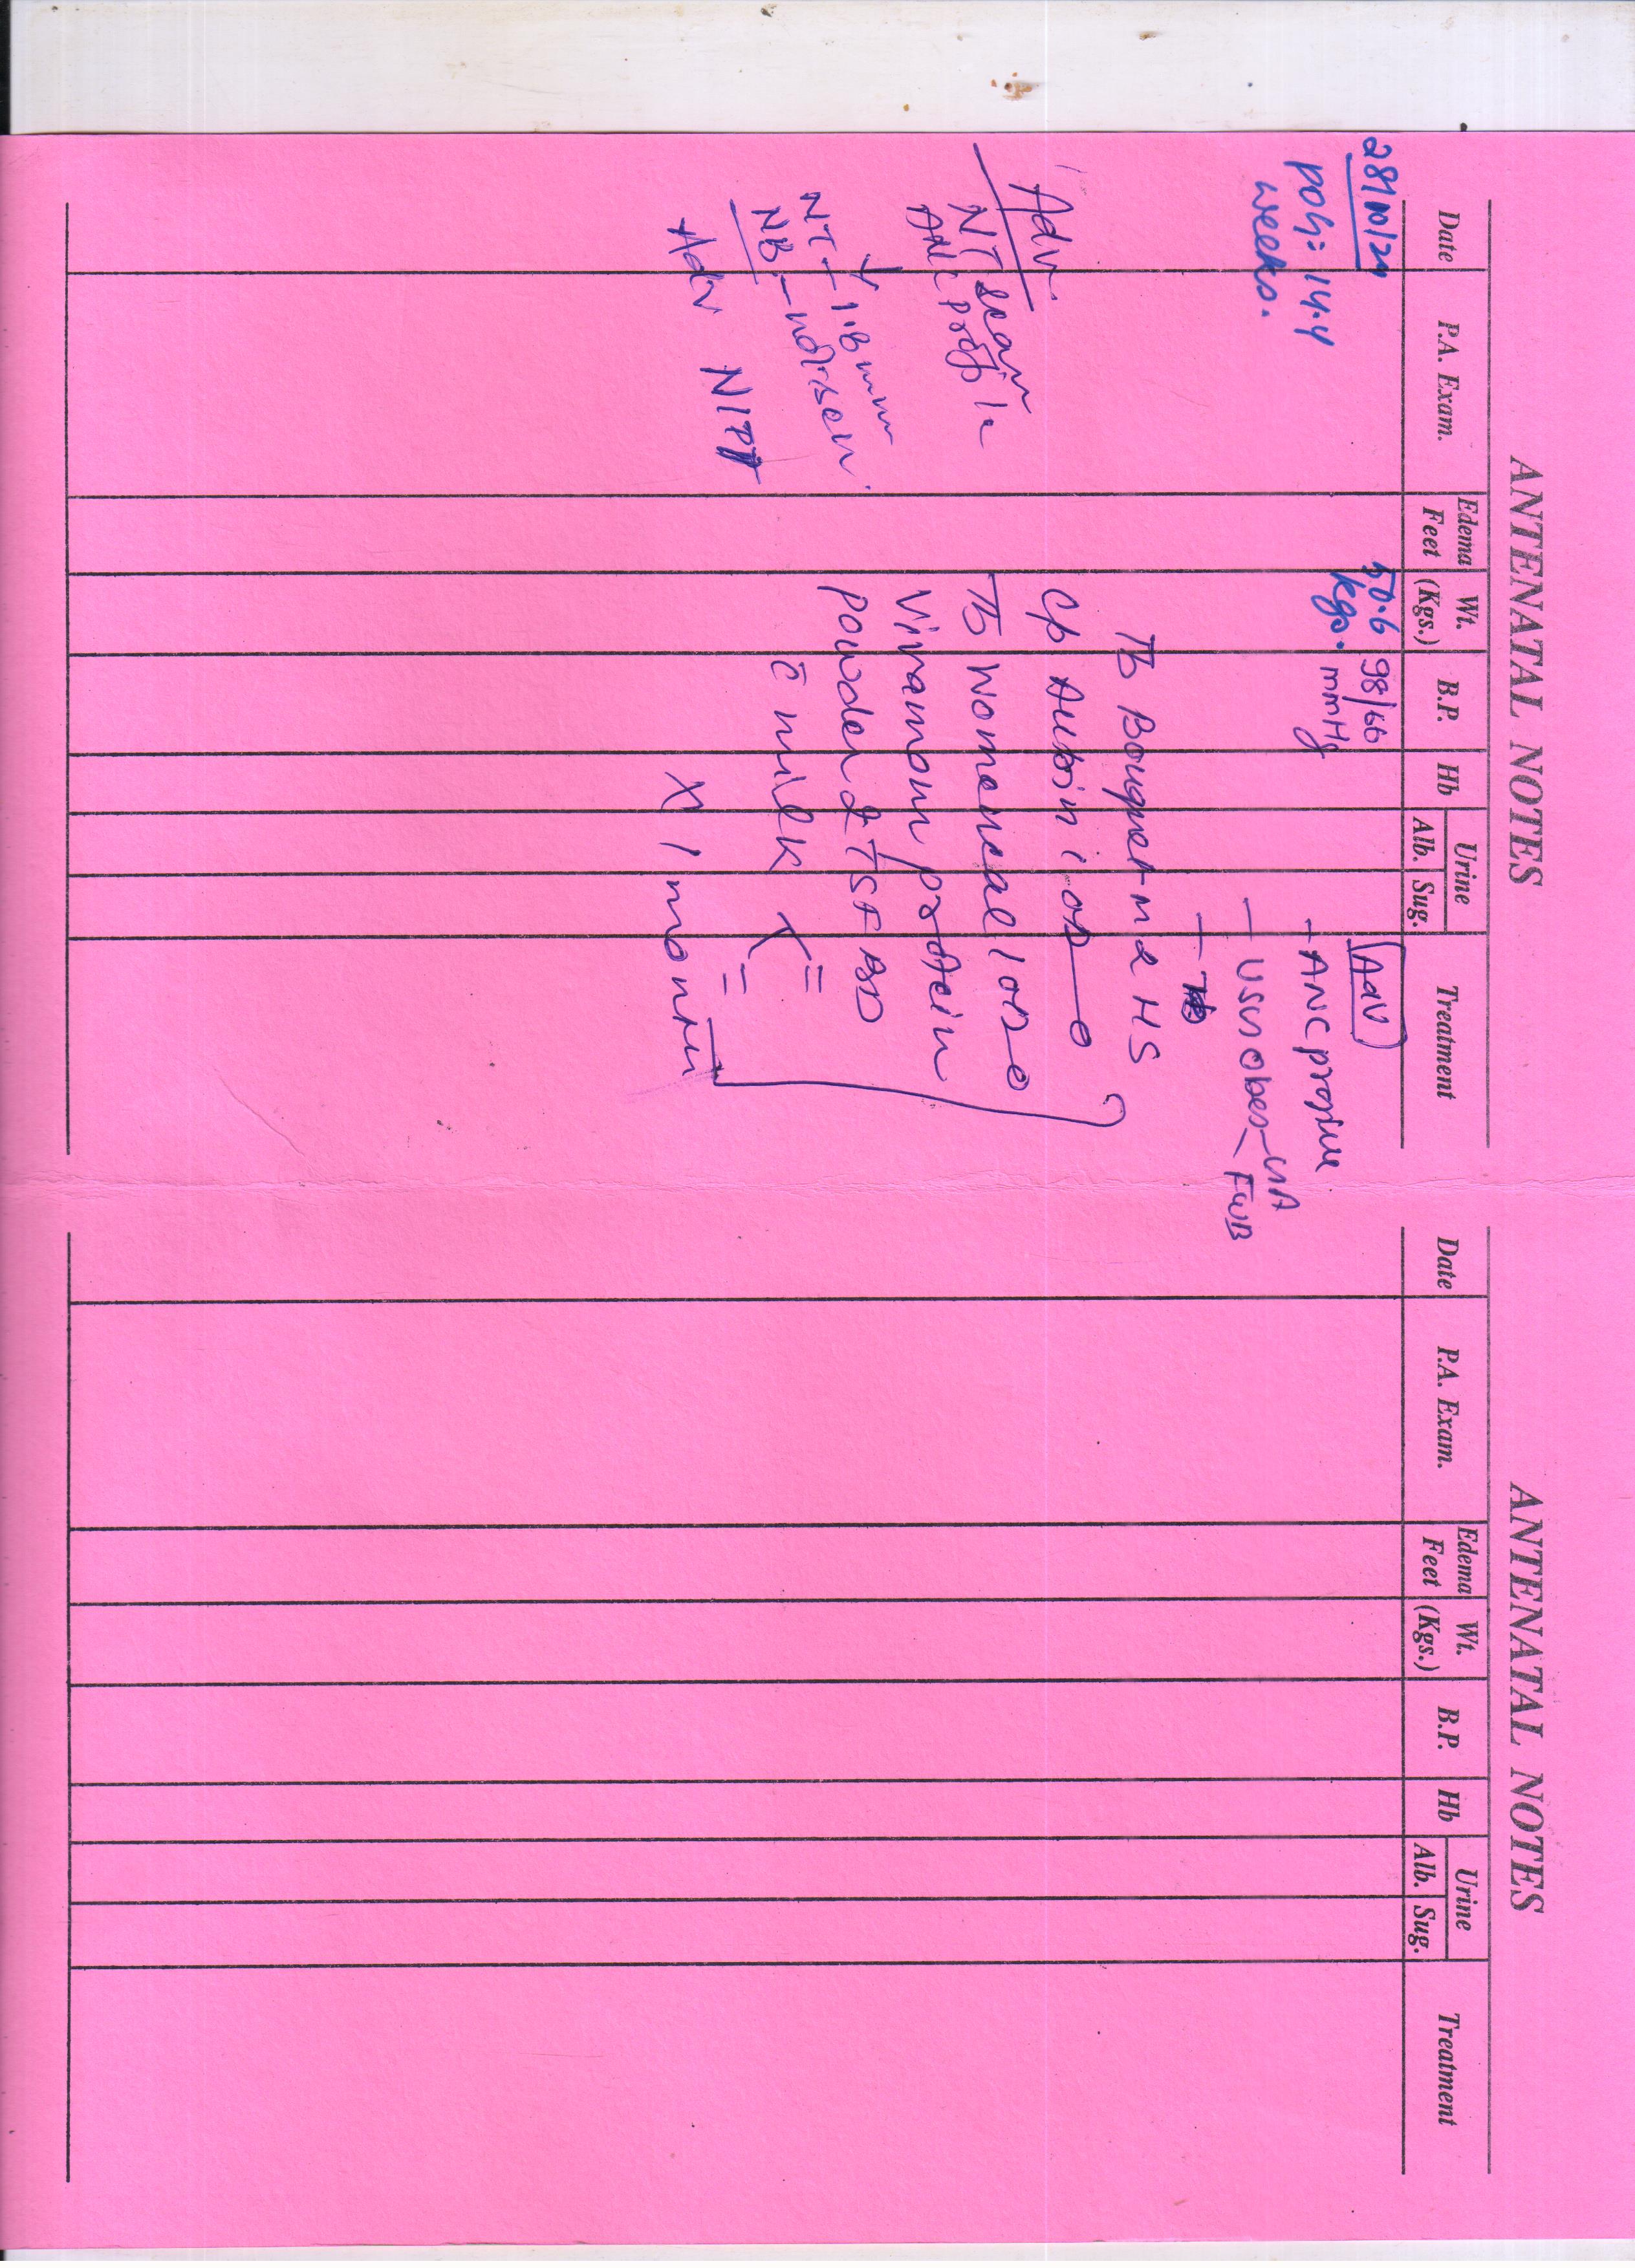 ANTENATAL NOTES
Date P.A. Exam. Edema Feet Wt. (Kgs.) B.P. Hb Urine Alb. Sug. Treatment
28/10/24
POG: 14.4
weeks.
50.6
kgs.
98/66
mmHg
Adv
- ANC profile
- USG obes - GA
FWB
-
Tb Bouquet M 2 HS
Cp Aubin 1 OD
Tb Womencal 1 OD
Viramom protein
powder 2 TSF BD
c̄ milk X
X 1 month
Adv.
NT scan
ANC profile
↓
NT - 1.8 mm
NB - not seen.
Adv NIPT
ANTENATAL NOTES
Date P.A. Exam. Edema Feet Wt. (Kgs.) B.P. Hb Urine Alb. Sug. Treatment